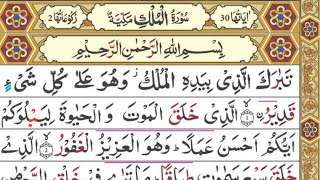 اٰیَاتُهَا 30 سُوْرَةُ الْمُلْكِ مَكِّيَّةٌ رُكُوْعَاتُهَا 2
بِسْمِ اللهِ الرَّحْمٰنِ الرَّحِيْمِ
تَبٰرَكَ الَّذِيْ بِيَدِهِ الْمُلْكُ وَهُوَ عَلٰى كُلِّ شَيْءٍ
قَدِيْرُۨ ۙ﴿۱﴾ الَّذِيْ خَلَقَ الْمَوْتَ وَ الْحَيٰوةَ لِيَبْلُوَكُمْ
اَيُّكُمْ اَحْسَنُ عَمَلًا ؕ وَهُوَ الْعَزِيْزُ الْغَفُوْرُ ۙ﴿۲﴾ الَّذِيْ